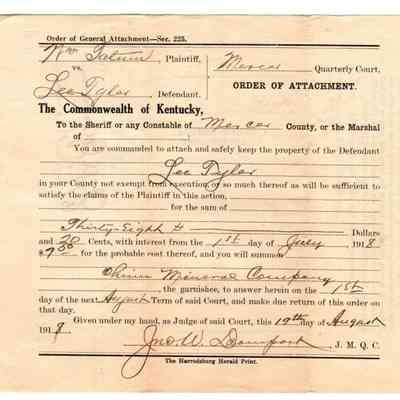 Order of General Attachment—Sec. 225.
Wm Tatum, Plaintiff, Mercer Quarterly Court,
vs.
Lee Tyler, Defendant. ORDER OF ATTACHMENT.
The Commonwealth of Kentucky,
To the Sheriff or any Constable of Mercer County, or the Marshal
of
You are commanded to attach and safely keep the property of the Defendant
Lee Tyler
in your County not exempt from execution, or so much thereof as will be sufficient to
satisfy the claims of the Plaintiff in this action,
for the sum of
Thirty-Eight Dollars
and 20 Cents, with interest from the 1st day of July 1918
$7.50 for the probable cost thereof, and you will summon
Mineral Company
the garnishee, to answer herein on the 1st
day of the next August Term of said Court, and make due return of this order on
that day.
Given under my hand, as Judge of said Court, this 19th day of August
1918.
Jno. W. J. M. Q. C.
The Harrodsburg Herald Print.